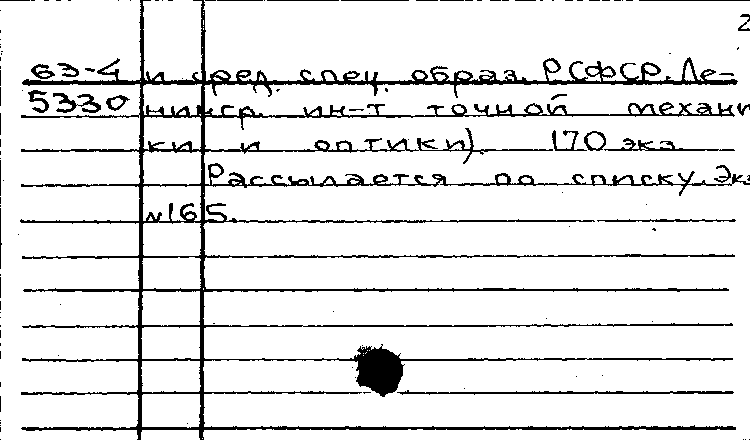 2
63-4 и сред. спец. образ. РСФСР. Ле-
5330 нингр. ин-т точной механи
ки и оптики). 170 экз.
Рассылается по списку. Экз
№165.